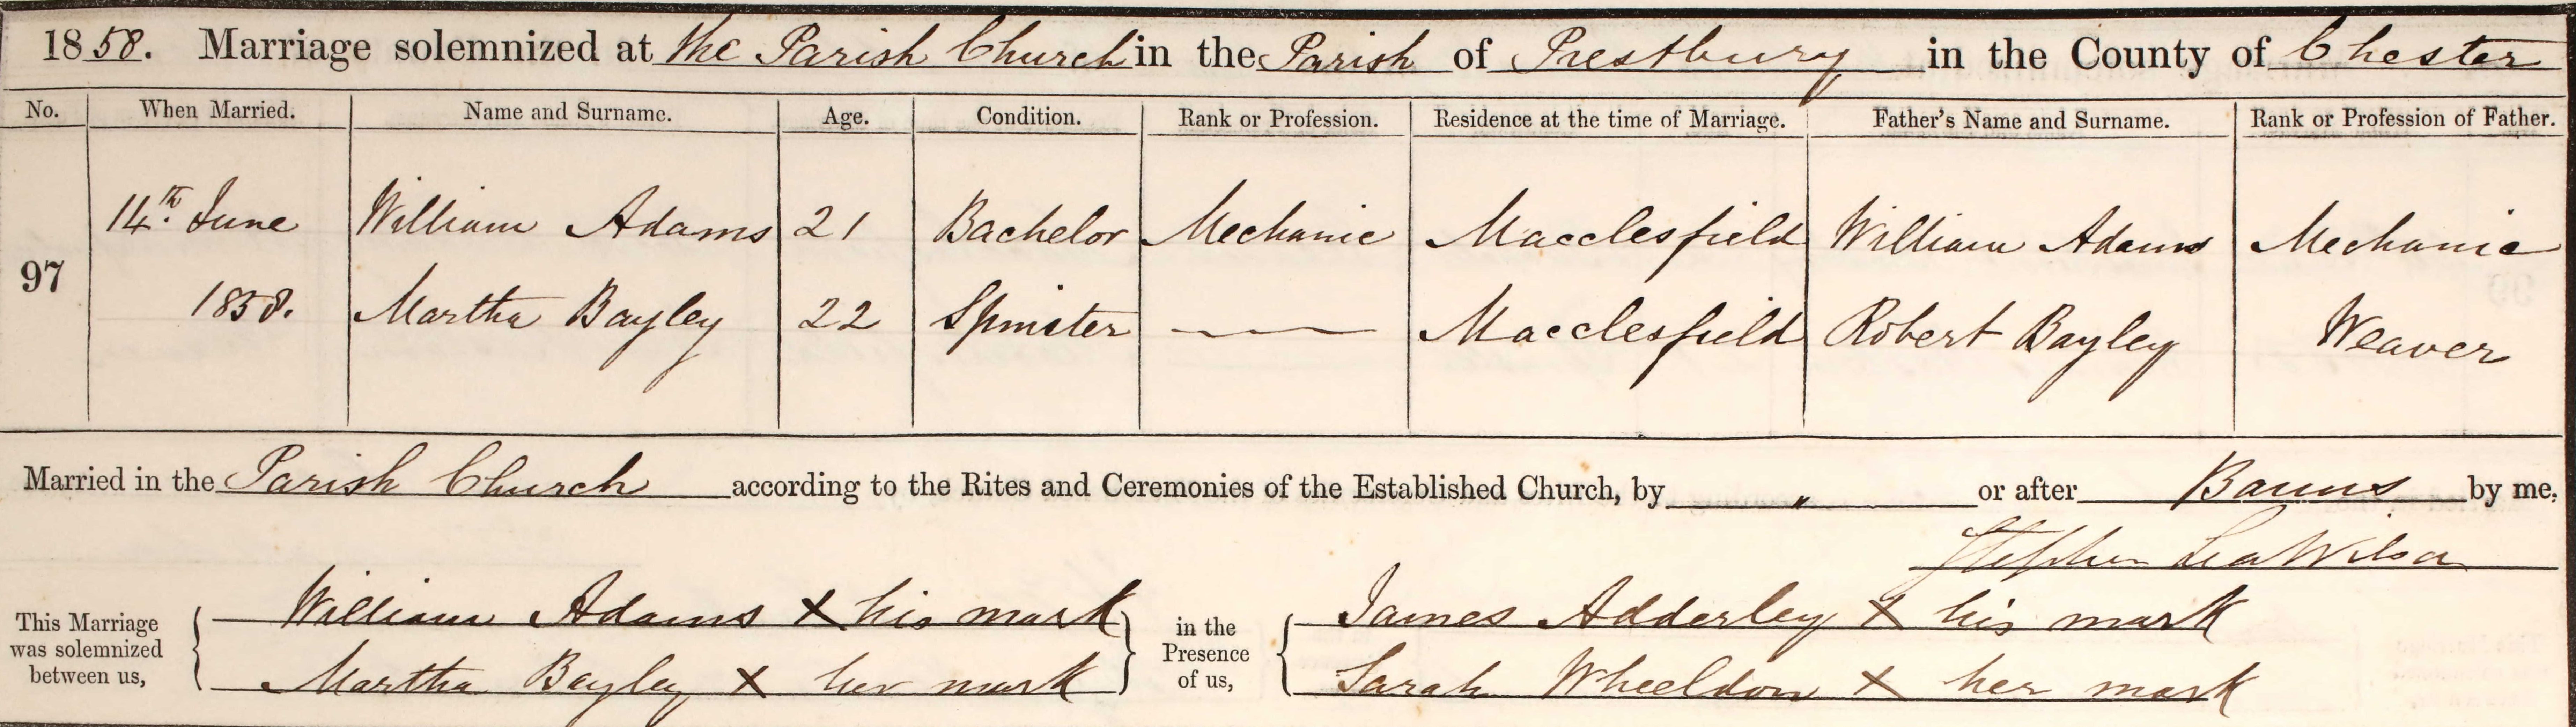 1858. Marriage solemnized at the Parish Church in the Parish of Prestbury in the County of Chester
No. When Married. Name and Surname. Age. Condition. Rank or Profession. Residence at the time of Marriage. Father's Name and Surname. Rank or Profession of Father.
14th. June William Adams 21 Bachelor Mechanic Macclesfield William Adams Mechanic
97
1858. Martha Bayley 22 Spinster Macclesfield Robert Bayley Weaver
Married in the Parish Church according to the Rites and Ceremonies of the Established Church, by " or after Banns by me,
Stephen Lea Wilson
This Marriage was solemnized between us,
William Adams X his mark
Martha Bayley X her mark
in the Presence of us,
James Adderley X his mark
Sarah Wheeldon X her mark